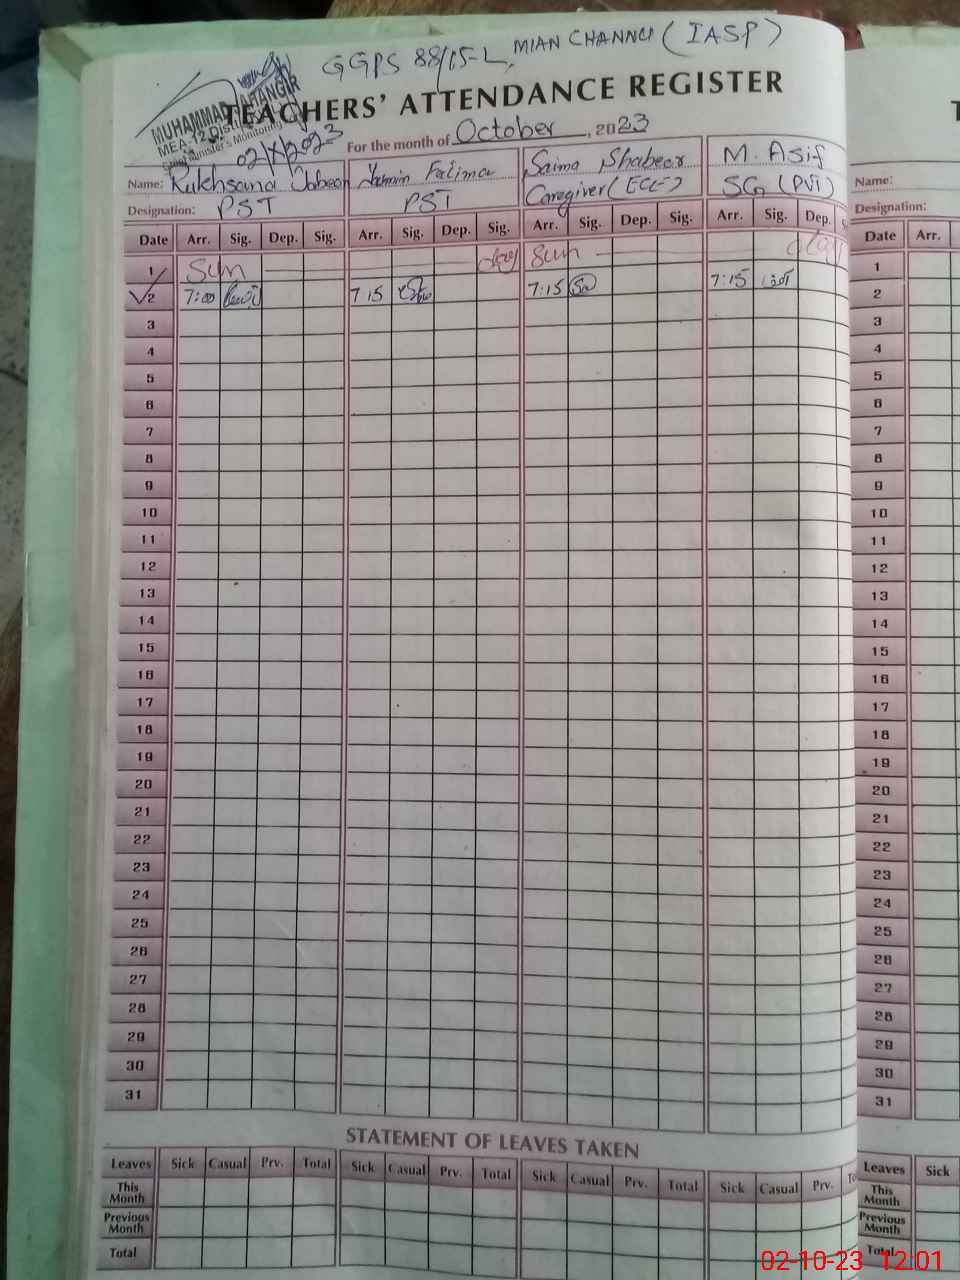 GGPS 88/15-L, MIAN CHANNU (IASP)
TEACHERS' ATTENDANCE REGISTER
MUHAMMAD JAHANGIR
MEA-12 Distt
Chief Minister's Monitoring
02/X/2023
For the month of October, 2023
Name: Rukhsana Jabeen Yasmin Fatima Saima Shabeer M. Asif
Designation: PST PST Caregiver (ECE) SG (PVT)
Date Arr. Sig. Dep. Sig. Arr. Sig. Dep. Sig. Arr. Sig. Dep. Sig. Arr. Sig. Dep. S
1 Sun day Sun day
2 7:00 7:15 7:15 7:15
3
4
5
6
7
8
9
10
11
12
13
14
15
16
17
18
19
20
21
22
23
24
25
26
27
28
29
30
31
STATEMENT OF LEAVES TAKEN
Leaves Sick Casual Prv. Total Sick Casual Prv. Total Sick Casual Prv. Total Sick Casual Prv. To
This Month
Previous Month
Total
T
Name:
Designation:
Date Arr.
1
2
3
4
5
6
7
8
9
10
11
12
13
14
15
16
17
18
19
20
21
22
23
24
25
26
27
28
29
30
31
Leaves Sick
This Month
Previous Month
Total
02-10-23 12:01